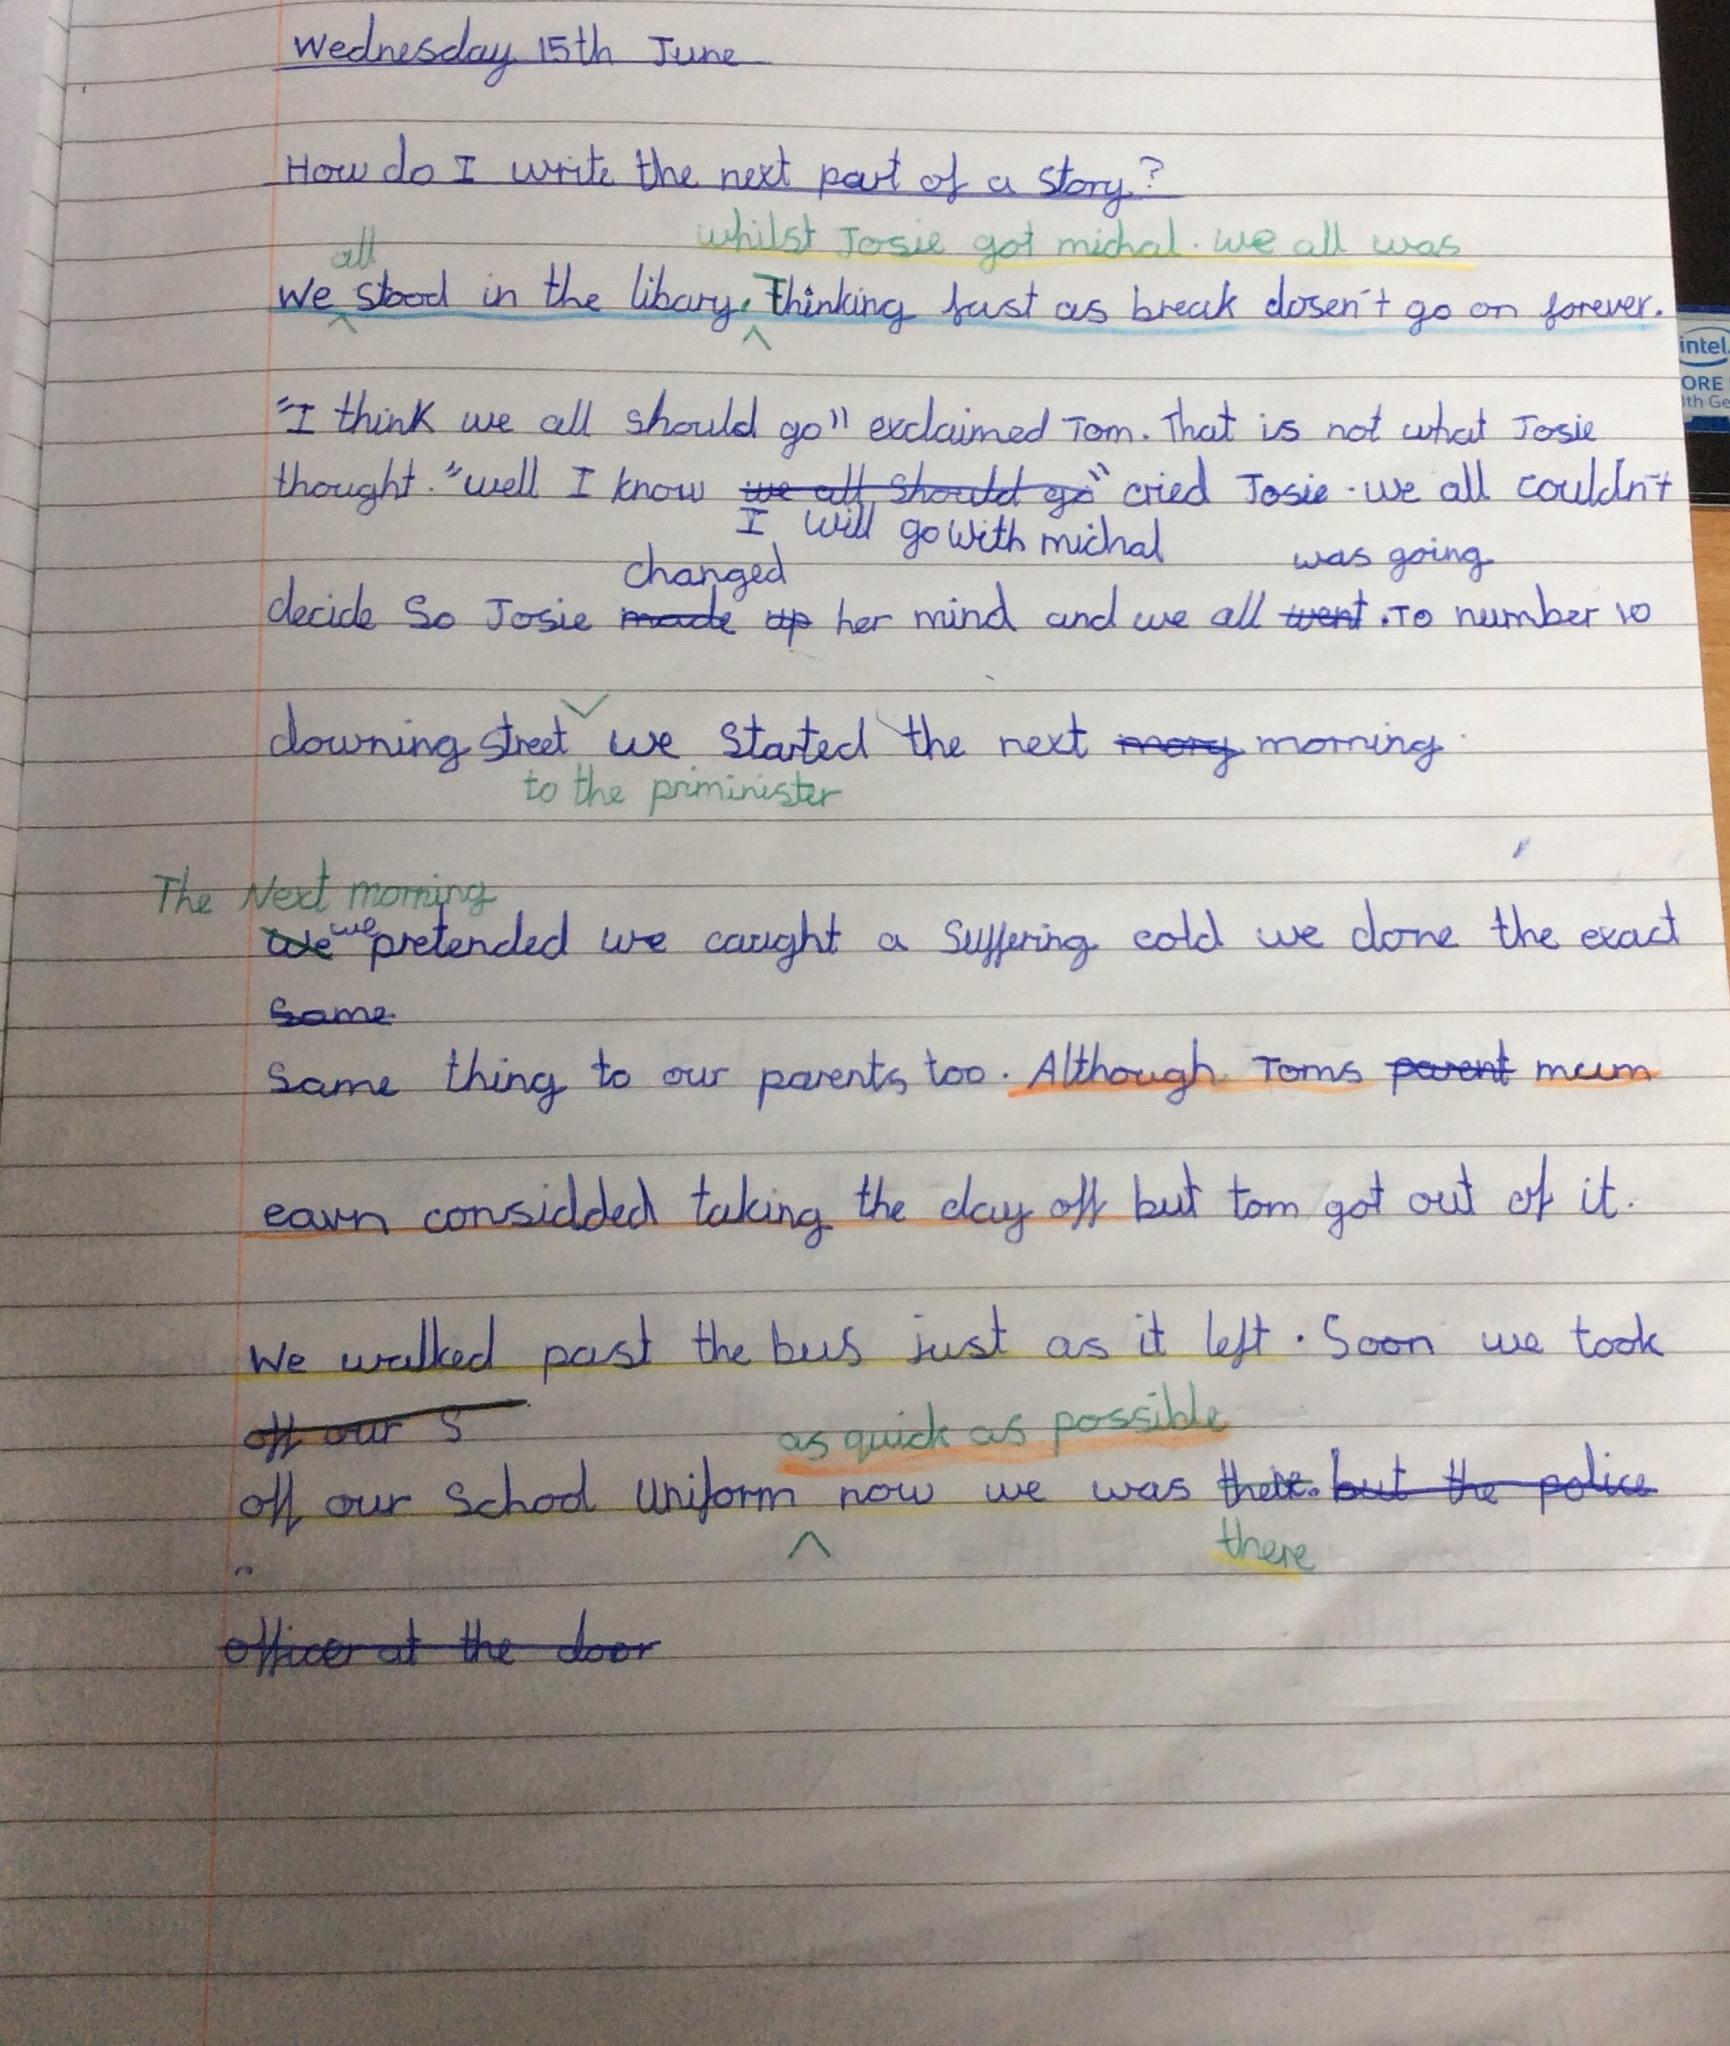 Wednesday 15th June
How do I write the next part of a story?
all whilst Josie got michal. we all was
We stood in the libary. Thinking fast as break dosen't go on forever.
"I think we all should go" exclaimed Tom. That is not what Josie
thought. "well I know we all should go" cried Josie. we all couldn't
I will go with michal
changed was going
decide So Josie made up her mind and we all went. To number 10
downing street we started the next mory morning.
to the priminister
The Next morning
We we pretended we caught a suffering cold we done the exact
Same
Same thing to our parents too. Although Toms parent mum
eavn considded taking the day off but tom got out of it.
We walked past the bus just as it left. Soon we took
off our S
as quick as possible
off our School Uniform now we was there. but the police
there
officer at the door
intel
ORE
th Ge